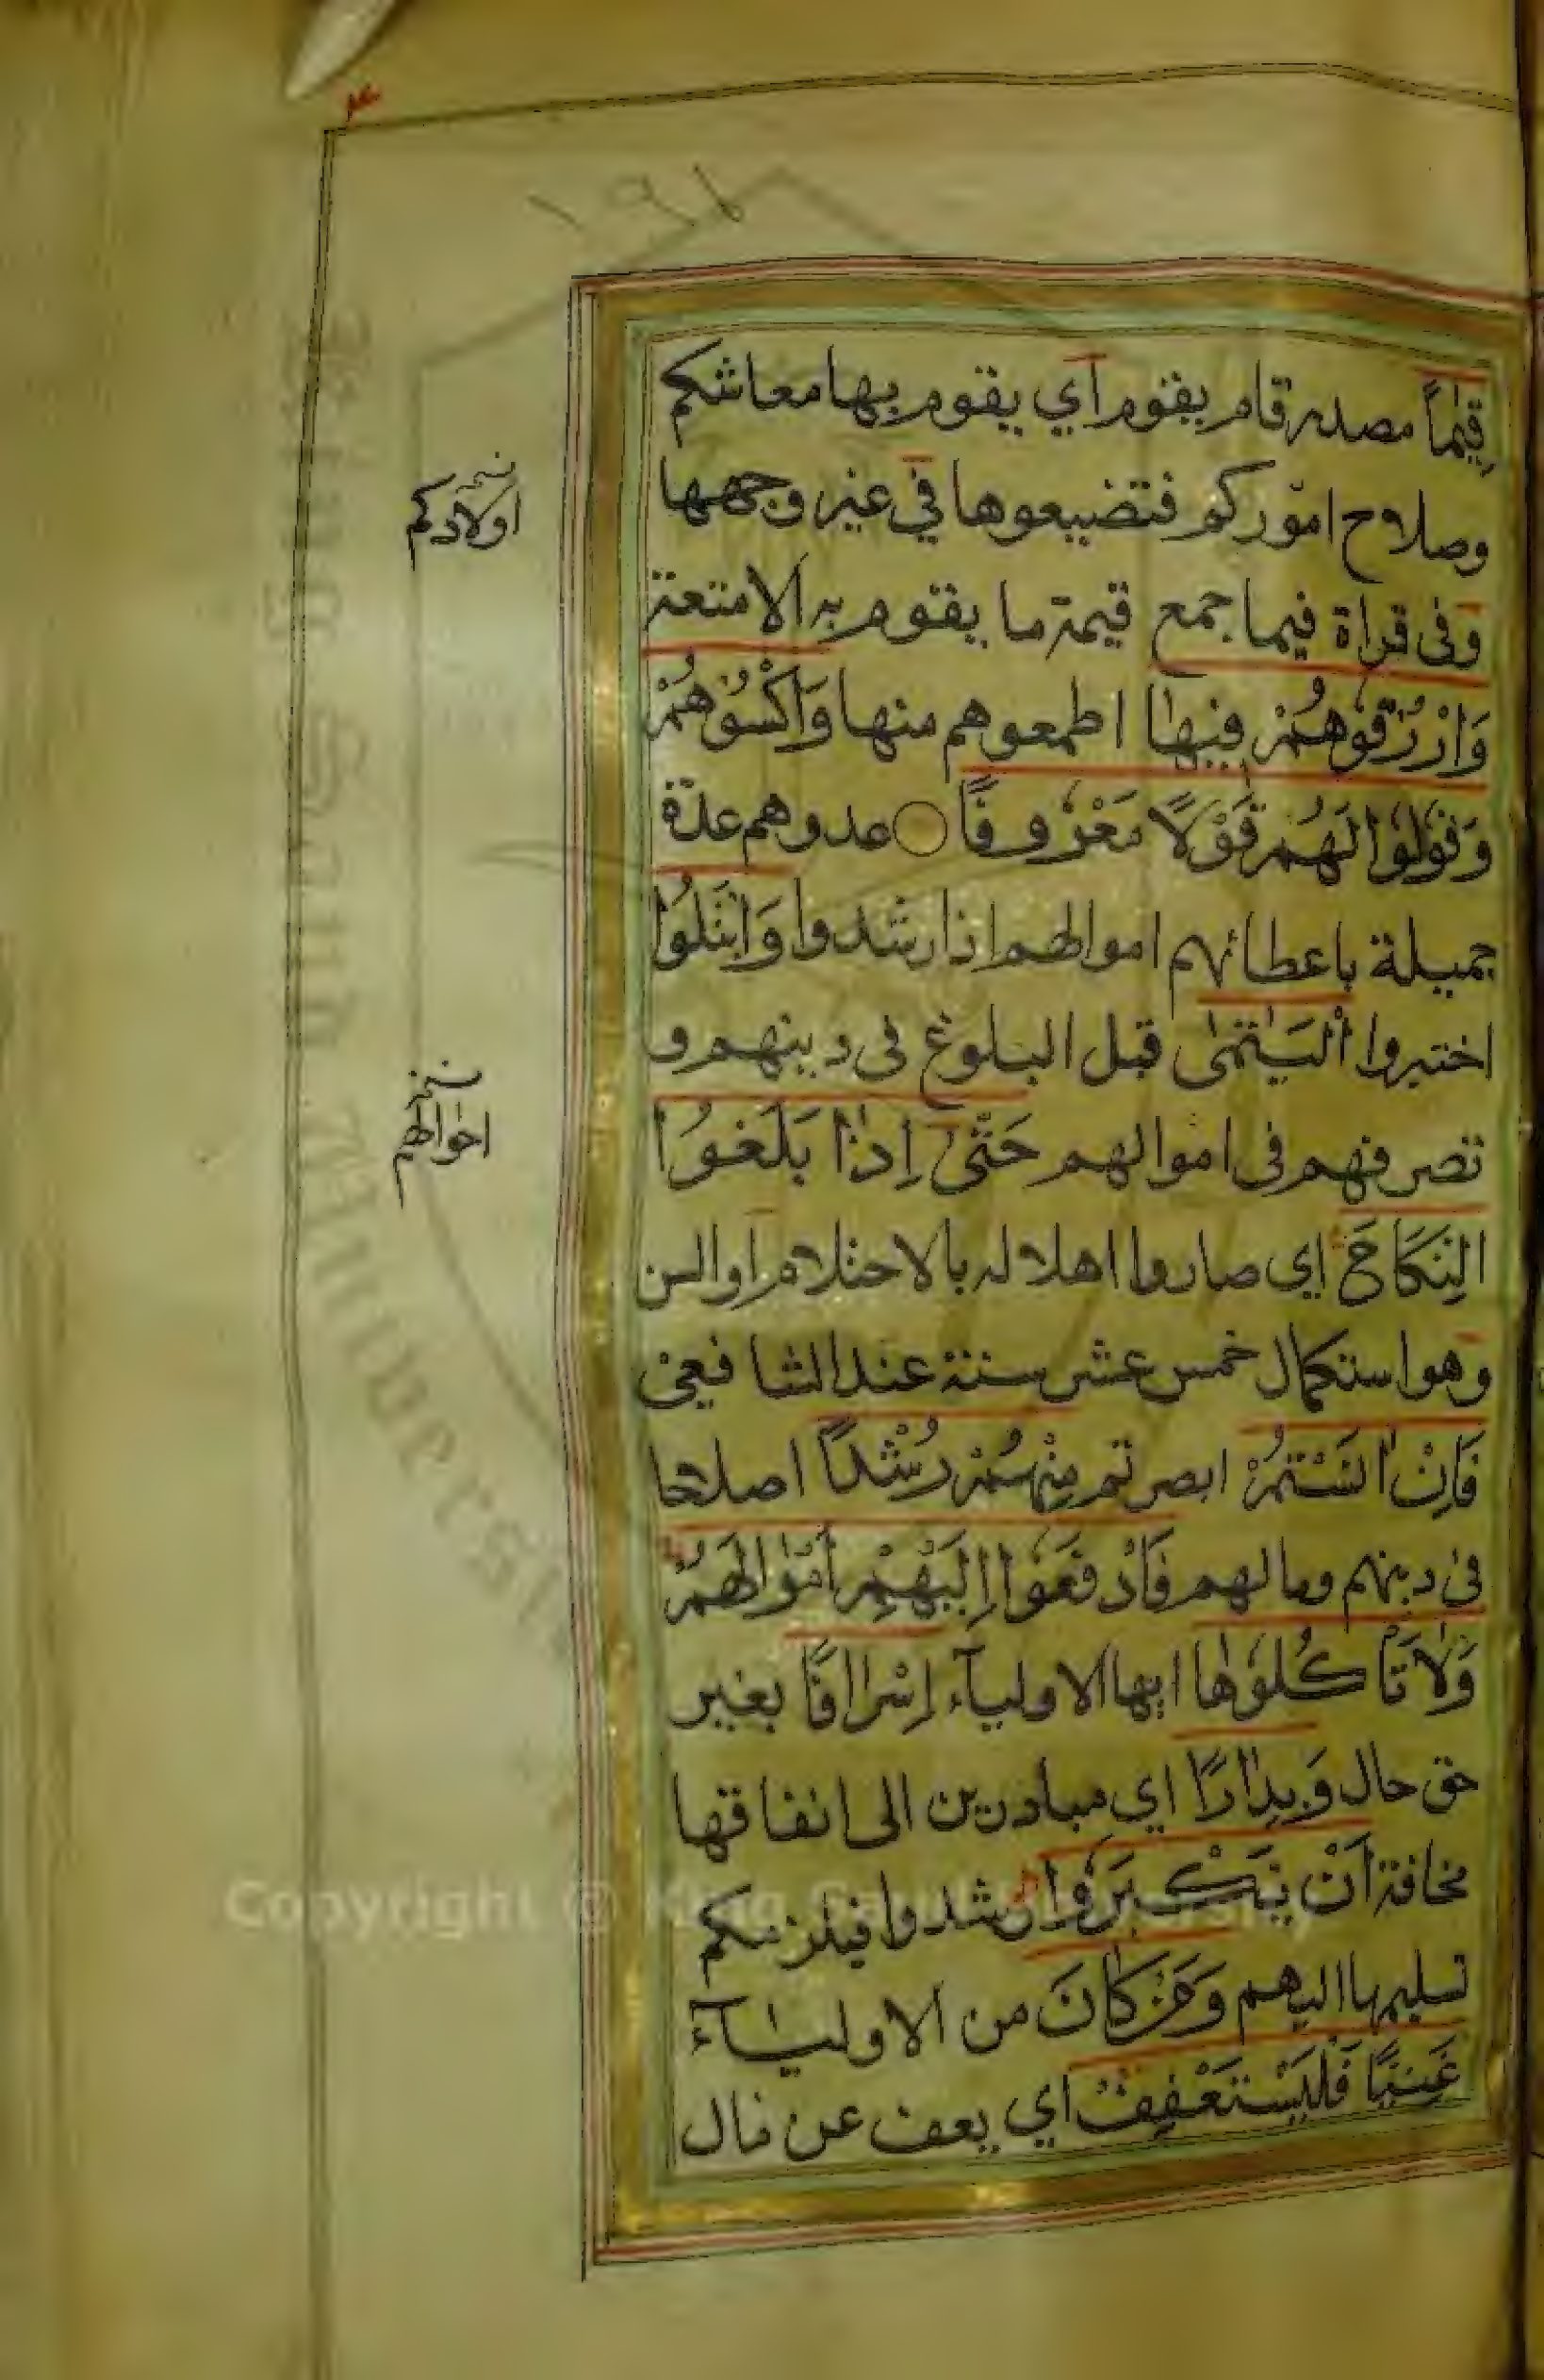 ١٩٦
قِيٰمًا مصدر قام يقوم اي يقوم بها معاشكم
وصلاح اموركم فتضيعوها في غير وجهها
وفى قراة قيما جمع قيمة ما يقوم به الامتعة
وَارْزُقُوْهُمْ فِيهٰا اطمعوهم منها وَاكْسُوْهُمْ
وَقُوْلُوْا لَهُمْ قَوْلًا مَعْرُوفًا عدوهم عدّة
جميلة باعطائهم اموالهم اذا رشدوا وَابْتَلُوْا
اختبروا الْيَتٰمٰى قبل البلوغ فى دينهم و
تصرفهم فى اموالهم حَتّٰىٓ اِذٰا بَلَغُوْا
النِكَاحَ اي صاروا اهلا له بالاحتلام او السن
وهو استكمال خمس عشر سنة عند الشافعى
فَاِنْ اٰنَسْتُمْ ابصرتم مِنْهُمْ رُشْدًا اصلاحا
فى دينهم ومالهم فَادْفَعُوْا اِلَيْهِمْ اَمْوٰالَهُمْ
وَلٰا تَأْكُلُوْهٰا ايها الاوليآء اِسْرٰافًا بغير
حق حال وَبِدٰارًا اي مبادرين الى انفاقها
مخافة اَنْ يَكْبَرُوْا رشدوا فيلزمكم
تسليمها اليهم وَمَنْ كٰانَ من الاوليٰآء
غَنِيًّا فَلْيَسْتَعْفِفْ اي يعف عن مال
نسخه
اولادكم
نسخه
احوالهم
Copyright © King Saud University